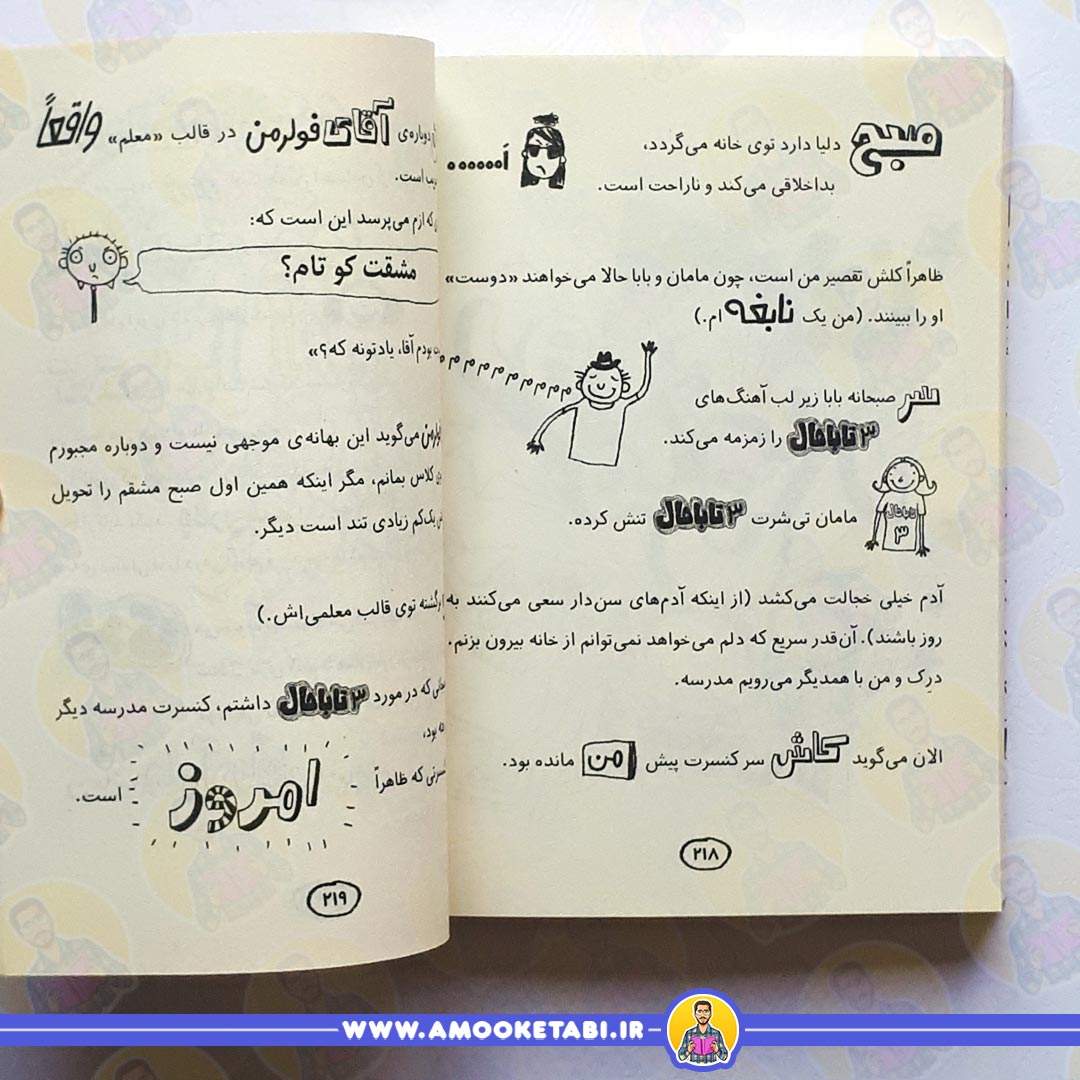 صبح دلیا دارد توی خانه می‌گردد،
بداخلاقی می‌کند و ناراحت است.
ظاهراً کلش تقصیر من است، چون مامان و بابا حالا می‌خواهند «دوست»
او را ببینند. (من یک نابغه ام.)
سر صبحانه بابا زیر لب آهنگ‌های
۳تاباحال را زمزمه می‌کند.
مامان تی‌شرت ۳تاباحال تنش کرده.
تاباحال
۳
آدم خیلی خجالت می‌کشد (از اینکه آدم‌های سن‌دار سعی می‌کنند به
روز باشند). آن‌قدر سریع که دلم می‌خواهد نمی‌توانم از خانه بیرون بزنم.
درک و من با همدیگر می‌رویم مدرسه.
الان می‌گوید کاش سر کنسرت پیش من مانده بود.
۲۱۸
دوباره‌ی آقای فولرمن در قالب «معلم» واقعاً
است.
که ازم می‌پرسد این است که:
مشقت کو تام؟
بودم آقا، یادتونه که؟»
می‌گوید این بهانه‌ی موجهی نیست و دوباره مجبورم
کلاس بمانم، مگر اینکه همین اول صبح مشقم را تحویل
یک‌کم زیادی تند است دیگر.
توی قالب معلمی‌اش.)
که در مورد ۳تاباحال داشتم، کنسرت مدرسه دیگر
بود،
که ظاهراً امروز است.
۲۱۹
WWW.AMOOKETABI.IR